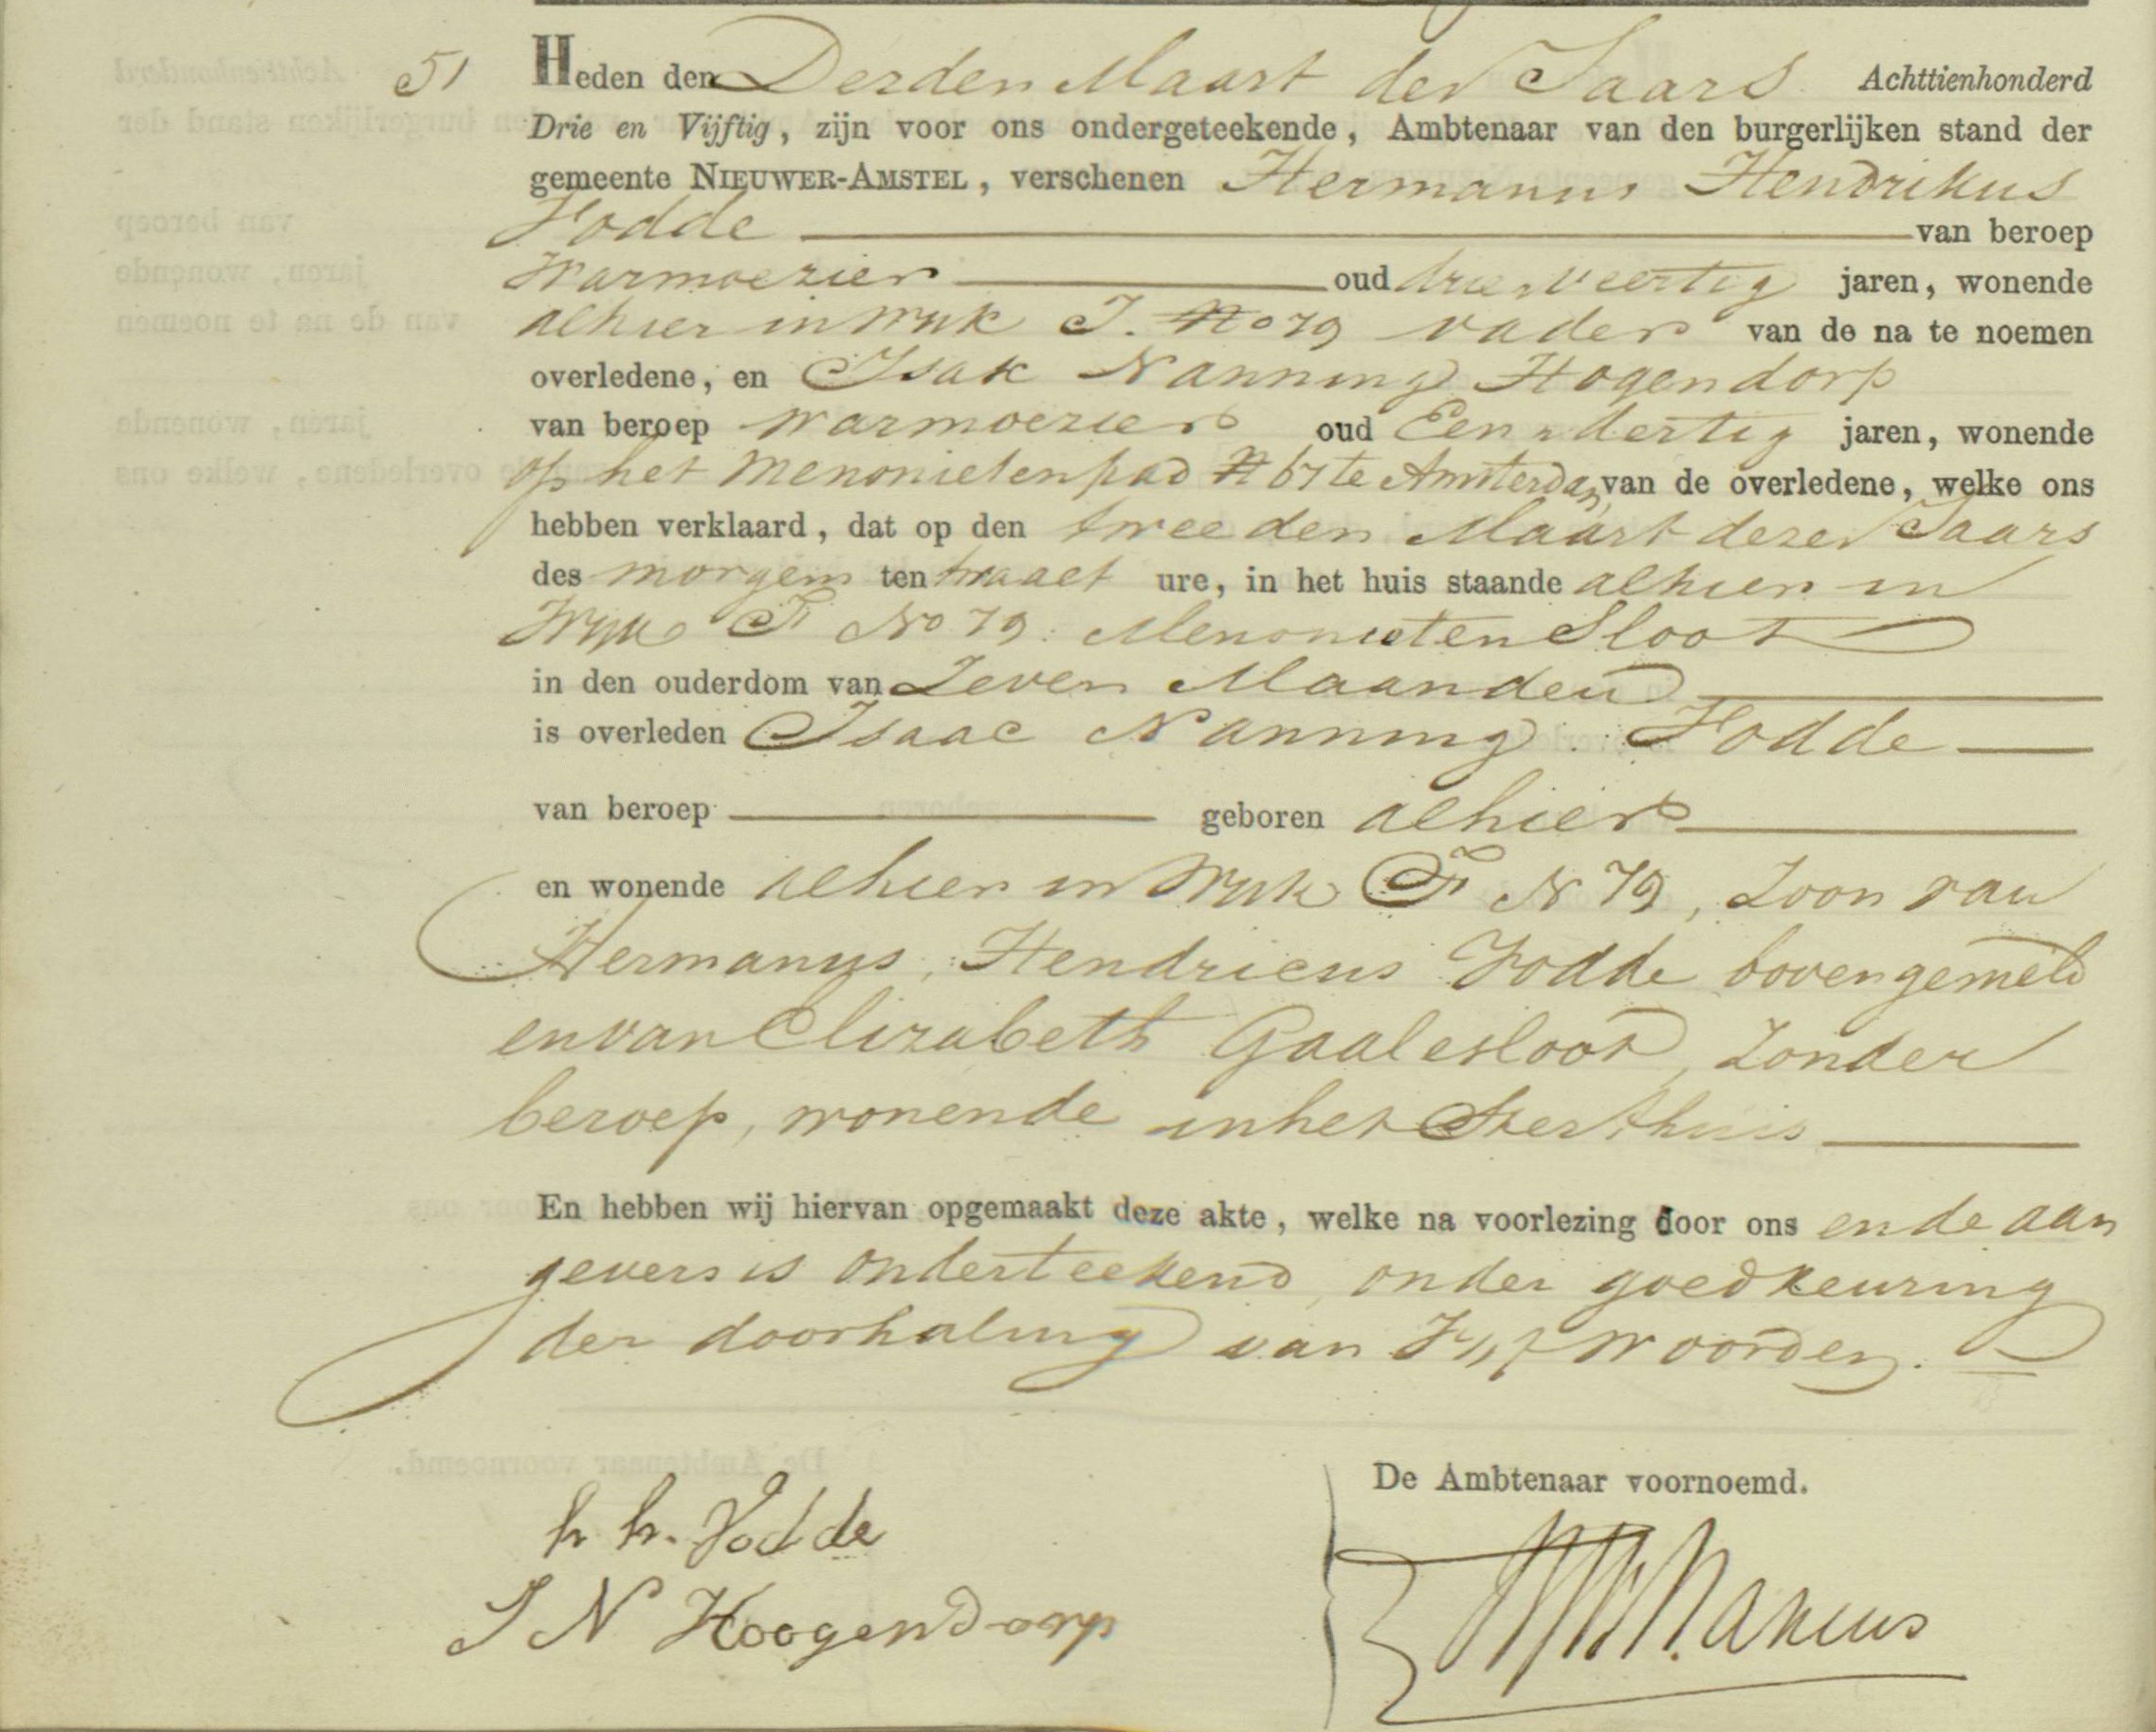 51 Heden den Derden Maart des Jaars Achttienhonderd
Drie en Vijftig, zijn voor ons ondergeteekende, Ambtenaar van den burgerlijken stand der
gemeente NIEUWER-AMSTEL, verschenen Hermanus Hendrikus
Fodde van beroep
Warmoezier oud drie veertig jaren, wonende
alhier in Wijk F. No 79 vader van de na te noemen
overledene, en Isak Nanning Hogendorp
van beroep Warmoezier oud Een dertig jaren, wonende
op het Menonietenpad N 67 te Amsterdam van de overledene, welke ons
hebben verklaard, dat op den tweeden Maart dezes Jaars
des morgens ten twaalf ure, in het huis staande alhier in
Wijk F No 79. Menonieten Sloot
in den ouderdom van Zeven Maanden
is overleden Isaac Nanning Fodde
van beroep geboren alhier
en wonende alhier in Wijk F N 79, Zoon van
Hermanus, Hendricus Fodde bovengemeld
en van Elizabeth Gaalesloot, Zonder
beroep, wonende in het Sterfhuis
En hebben wij hiervan opgemaakt deze akte, welke na voorlezing door ons en de aan
gevers is onderteekend, onder goedkeuring
der doorhaling van woorden.
De Ambtenaar voornoemd.
h h. Fodde
I N Hoogendorp